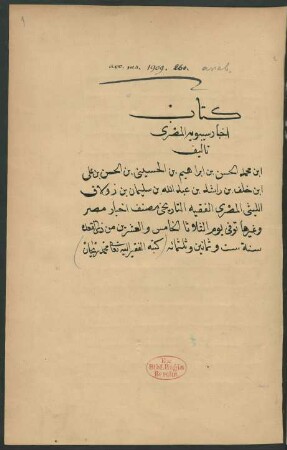 acc. ms. 1909. 260. arab.
كتاب
اخبار سيبويه المصرى
تاليف
ابن محمد الحسن بن ابراهيم بن الحسين بن الحسن بن على
ابن خلف بن راشد بن عبد الله بن سليمان بن زولاق
الليثى المصرى الفقيه التاريخى مصنف اخبار مصر
وغيرها توفى يوم الثلاثا الخامس والعشرين من ذى القعدة
سنة ست وثمانين وثلثمائة (كتبه الفقير اليه تعالى محمد
Ex
Biblioth. Regia
Berolin.